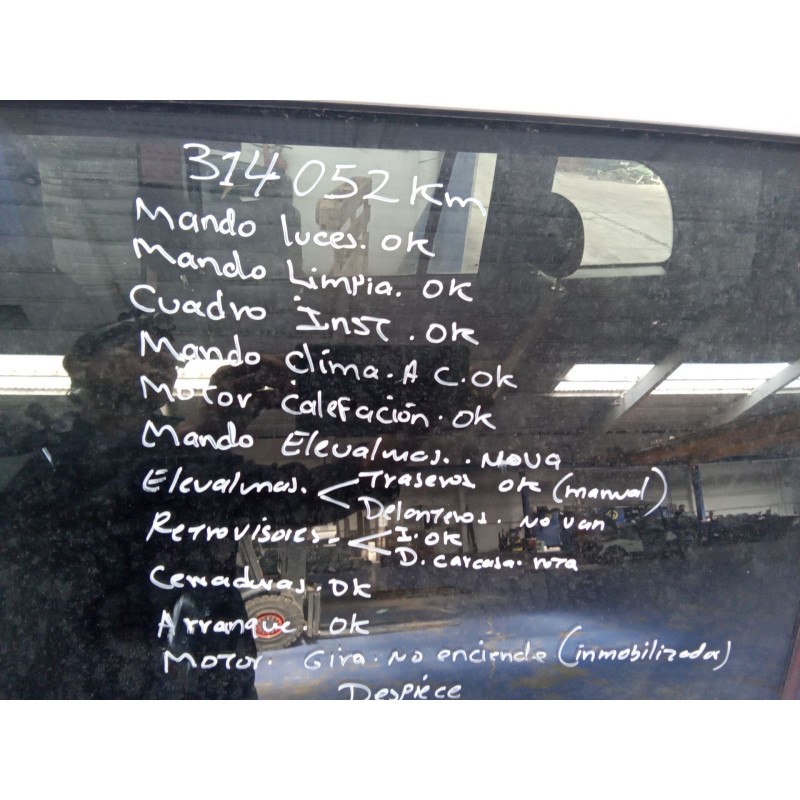 314 052 Km
Mando luces. OK
Mando Limpia. OK
Cuadro Inst. OK
Mando clima. A C. OK
Motor Calefación. OK
Mando Elevalunas.. NOVA
Elevalunas. Traseros OK (manual)
Delanteros. No van
Retrovisores I. OK
D. carcasa. rota
Cerraduras. OK
Arranque. OK
Motor. Gira. No enciende (inmobilizada)
Despiéce